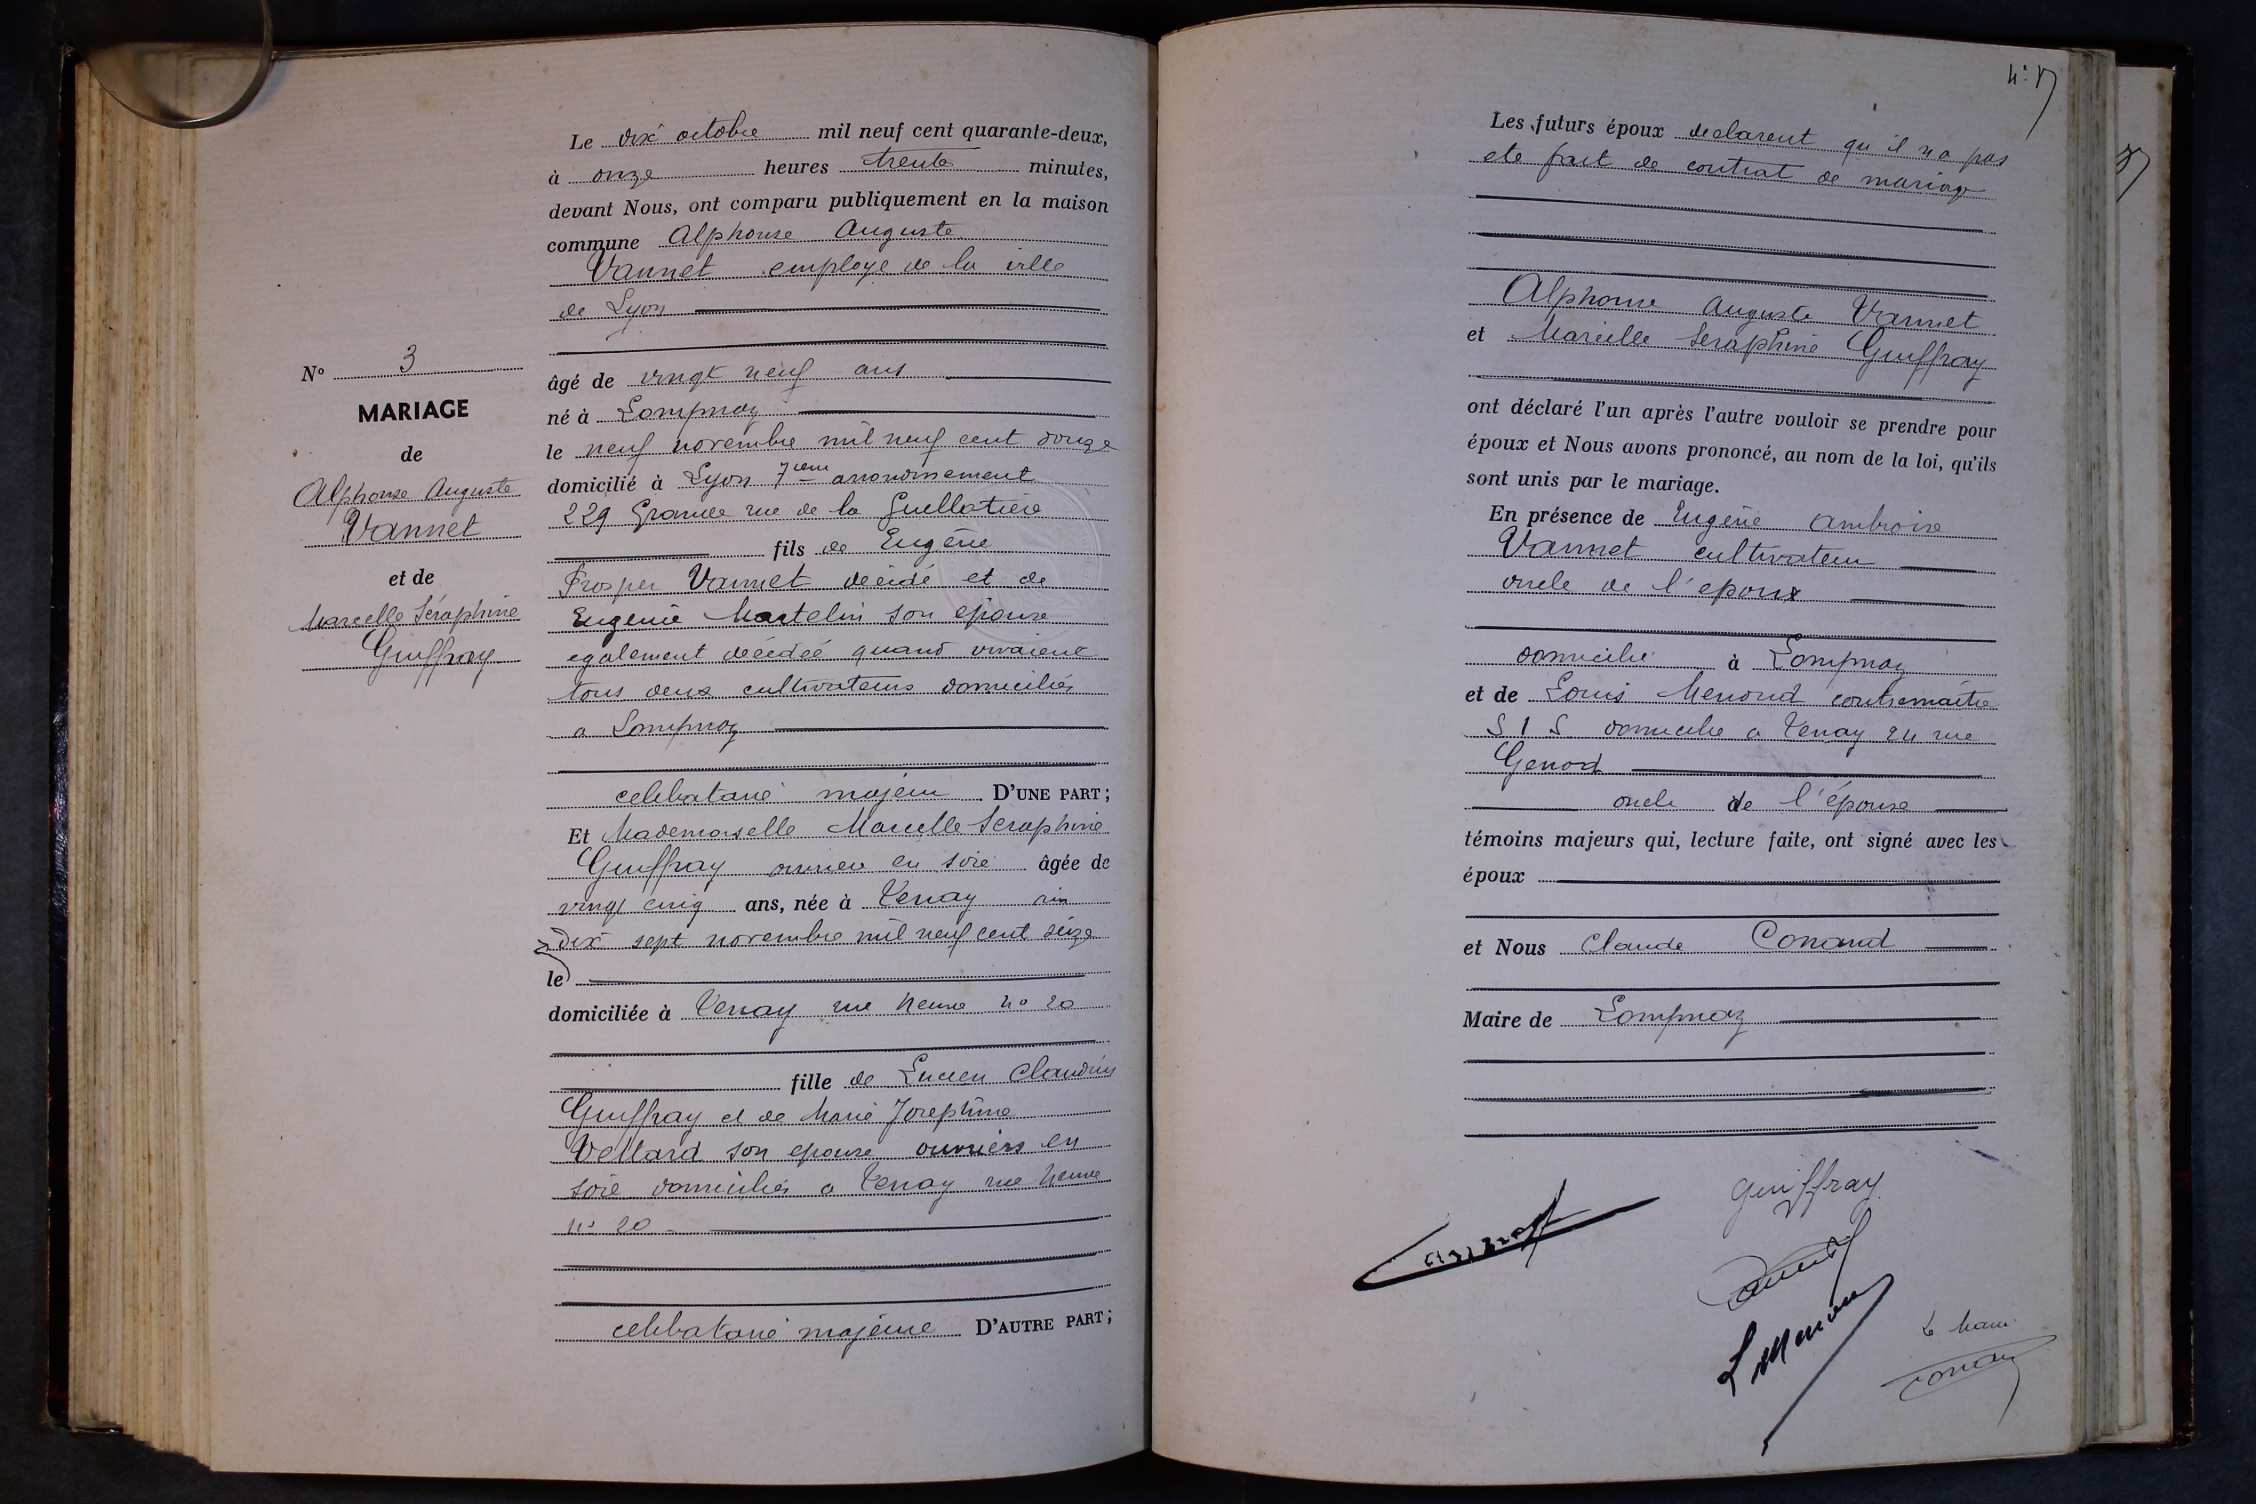 Le dix octobre mil neuf cent quarante-deux,
à onze heures trente minutes,
devant Nous, ont comparu publiquement en la maison
commune Alphonse Auguste
Vannet employé de la ville
de Lyon
âgé de vingt neuf ans
né à Lompnaz
le neuf novembre mil neuf cent douze
domicilié à Lyon 7ieme arrondissement
229 Grande rue de la Guillotière
fils de Eugène
Prosper Vannet décidé et de
Eugénie Martelin son epouse
egalement décédée quand vivaient
tous deux cultivateurs domiciliés
a Lompnaz
celibataire majeur D'UNE PART;
Et Mademoiselle Marcelle Seraphine
Guiffray ouvriere en soie âgée de
vingt cinq ans, née à Tenay
Dix sept novembre mil neuf cent seize
le
domiciliée à Tenay rue neuve no 20
fille de Lucien Claudius
Guiffray et de Marie Josephine
Vellard son epouse ouvriers en
soie domiciliés a Tenay rue neuve
no 20
celibataire majeure D'AUTRE PART;
No 3
MARIAGE
de
Alphonse Auguste
Vannet
et de
Marcelle Séraphine
Guiffray
Les futurs époux declarent qu'il n'a pas
ete fait de contrat de mariage
Alphonse Auguste Vannet
et Marcelle Seraphine Guiffray
ont déclaré l'un après l'autre vouloir se prendre pour
époux et Nous avons prononcé, au nom de la loi, qu'ils
sont unis par le mariage.
En présence de Eugène Ambroise
Vannet cultivateur
oncle de l'epoux
domicilié à Lompnaz
et de Louis Menond contremaitre
S I S domicilie a Tenay 24 rue
Genod
oncle de l'épouse
témoins majeurs qui, lecture faite, ont signé avec les
époux
et Nous Claude Conand
Maire de Lompnaz
Guiffray
Vannet
Le Maire
Conand